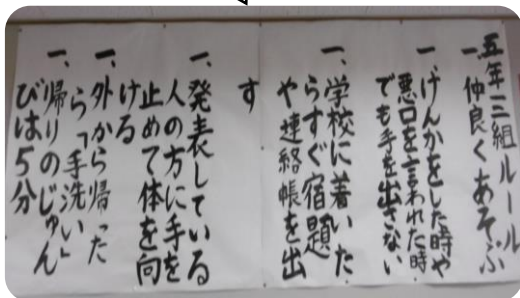 五年三組ルール
一、仲良くあそぶ
一、けんかをした時や
悪口を言われた時
でも手を出さない
一、学校に着いた
らすぐ宿題
や連絡帳を出
す
一、発表している
人の方に手を
止めて体を向
ける
一、外から帰った
ら「手洗い」
一、帰りのじゅん
びは5分